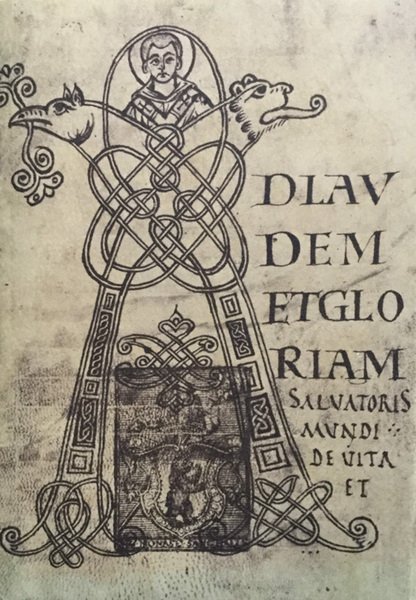 ADLAV
DEM
ETGLO
RIAM
SALVATORIS
MUNDI
DE VITA
ET